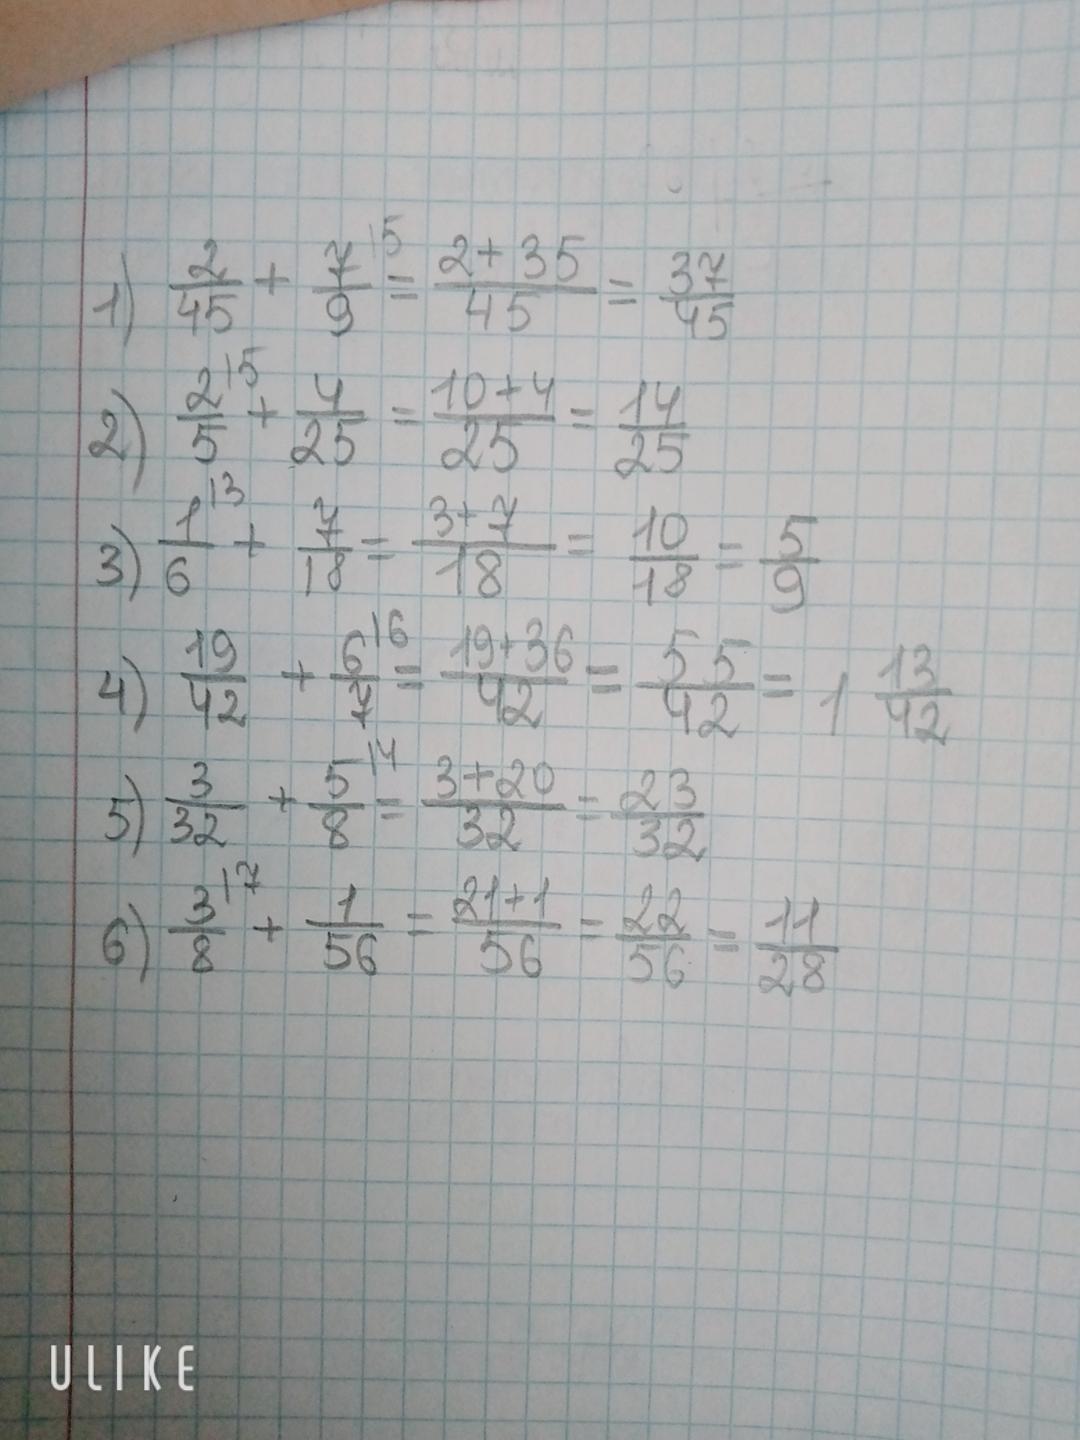 1) 2/45 + 7/9 |5 = 2+35/45 = 37/45
2) 2/5 |5 + 4/25 = 10+4/25 = 14/25
3) 1/6 |3 + 7/18 = 3+7/18 = 10/18 = 5/9
4) 19/42 + 6/7 |6 = 19+36/42 = 55/42 = 1 13/42
5) 3/32 + 5/8 |4 = 3+20/32 = 23/32
6) 3/8 |7 + 1/56 = 21+1/56 = 22/56 = 11/28
ULIKE